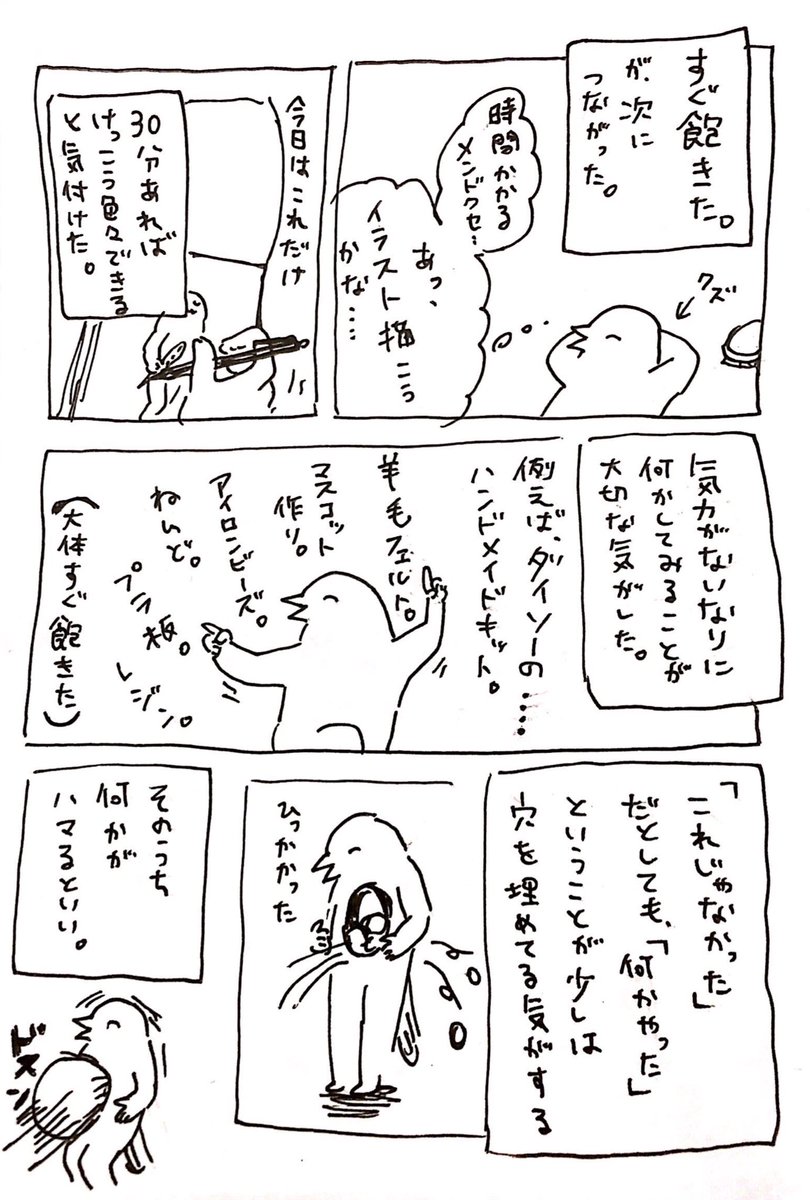 すぐ飽きた。
が、次に
つながった。
クズ
時間かかる
メンドクセ…
あっ、
イラスト描こう
かな……
今日はこれだけ
30分あれば
けっこう色々できる
と気付けた。
気力がないなりに
何かしてみることが
大切な気がした。
例えば、ダイソーの……
ハンドメイドキット。
羊毛フェルト。
マスコット
作り。
アイロンビーズ。
ねんど。
プラ板。
レジン。
(大体すぐ飽きた)
「これじゃなかった」
だとしても、「何かやった」
ということが少しは
穴を埋めてる気がする
ひっかかった
そのうち
何かが
ハマるといい。
ドスン